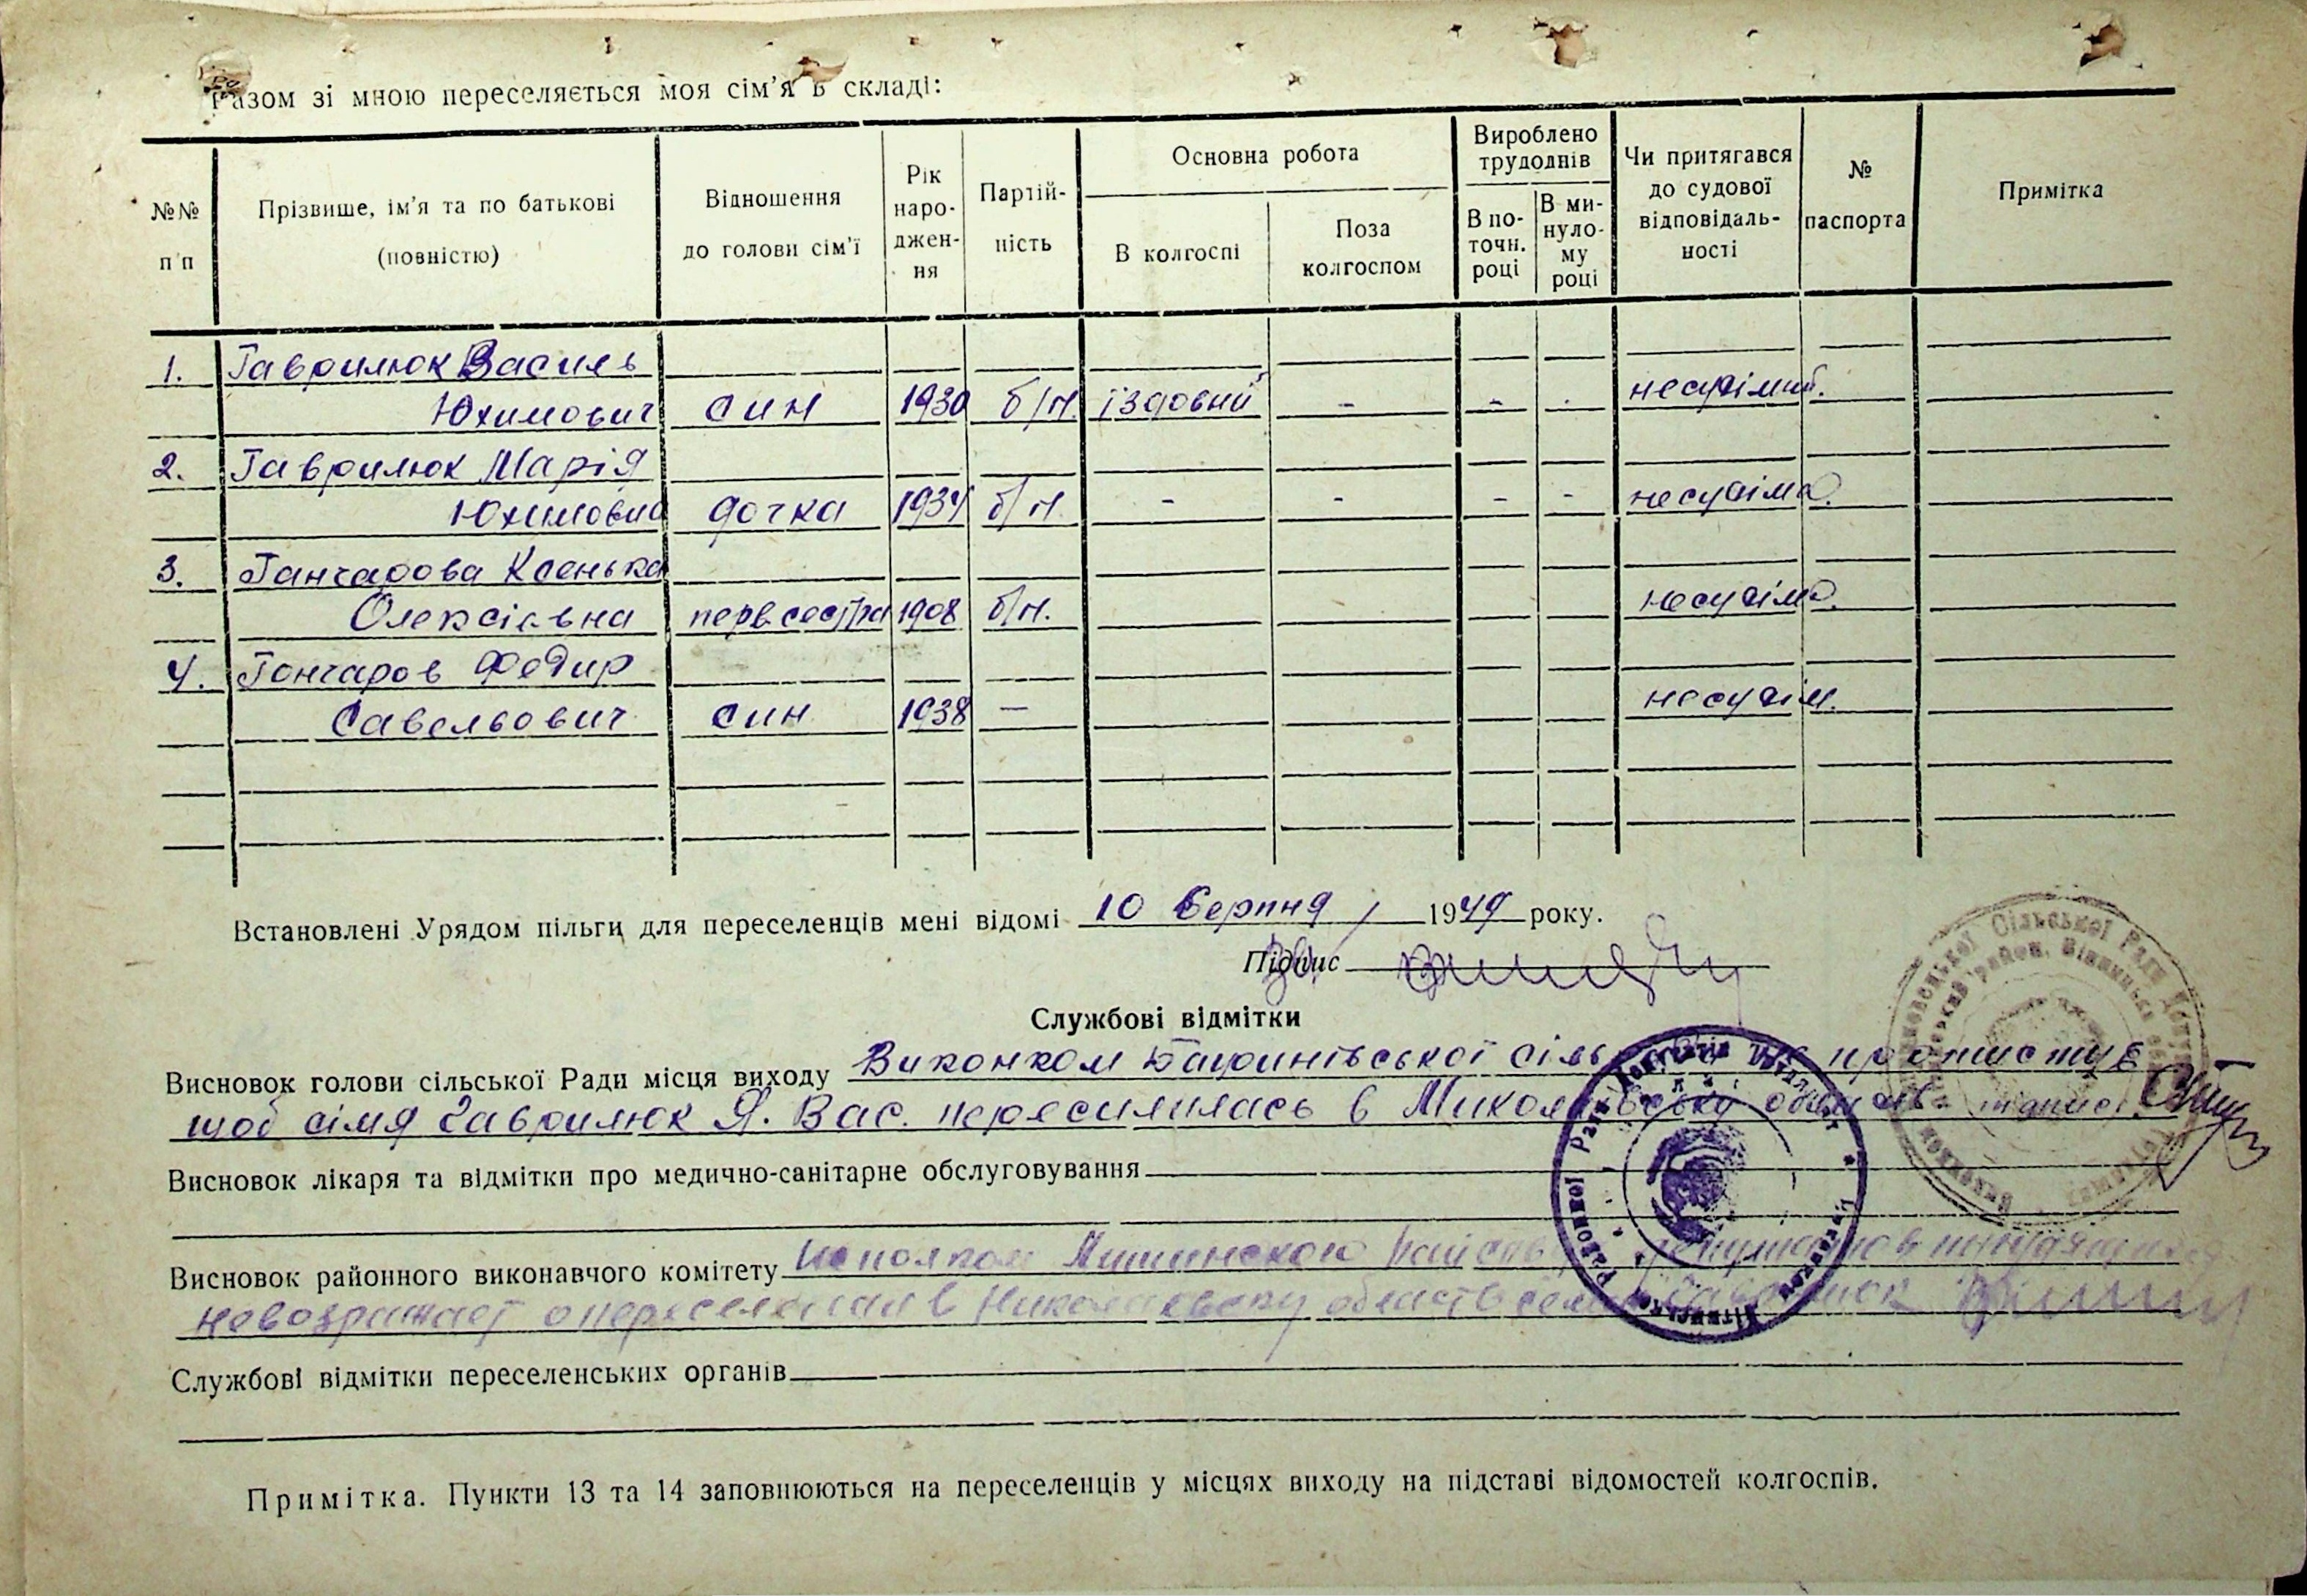 Разом зі мною переселяється моя сім'я в складі:
№№ п/п
Прізвище, ім'я та по батькові (повністю)
Відношення до голови сім'ї
Рік народження
Партійність
Основна робота
В колгоспі
Поза колгоспом
Вироблено трудоднів
В поточн. році
В минулому році
Чи притягався до судової відповідальності
№ паспорта
Примітка
1. Гаврилюк Василь
Юхимович син 1930 б/п. їздовий - - - несудімий.
2. Гаврилюк Марія
Юхимовна дочка 1934 б/п. - - - - несудіма.
3. Ганчарова Ксенька
Олексієвна перв. сестра 1908 б/п. несудіма.
4. Гончаров Федир
Савельович син 1938 — несудім.
Встановлені Урядом пільги для переселенців мені відомі 10 Серпня 1949 року.
Підпис
Службові відмітки
Висновок голови сільської Ради місця виходу Виконком сіль не протистує
щоб сімя Гаврилюк Я. Вас. пересилилась в Миколаївську область підпис
Висновок лікаря та відмітки про медично-санітарне обслуговування
Висновок районного виконавчого комітету Исполком депутатов трудящихся
невозражает о переселении в Николаевску область семьи Гаврилюк
Службові відмітки переселенських органів
Примітка. Пункти 13 та 14 заповнюються на переселенців у місцях виходу на підставі відомостей колгоспів.